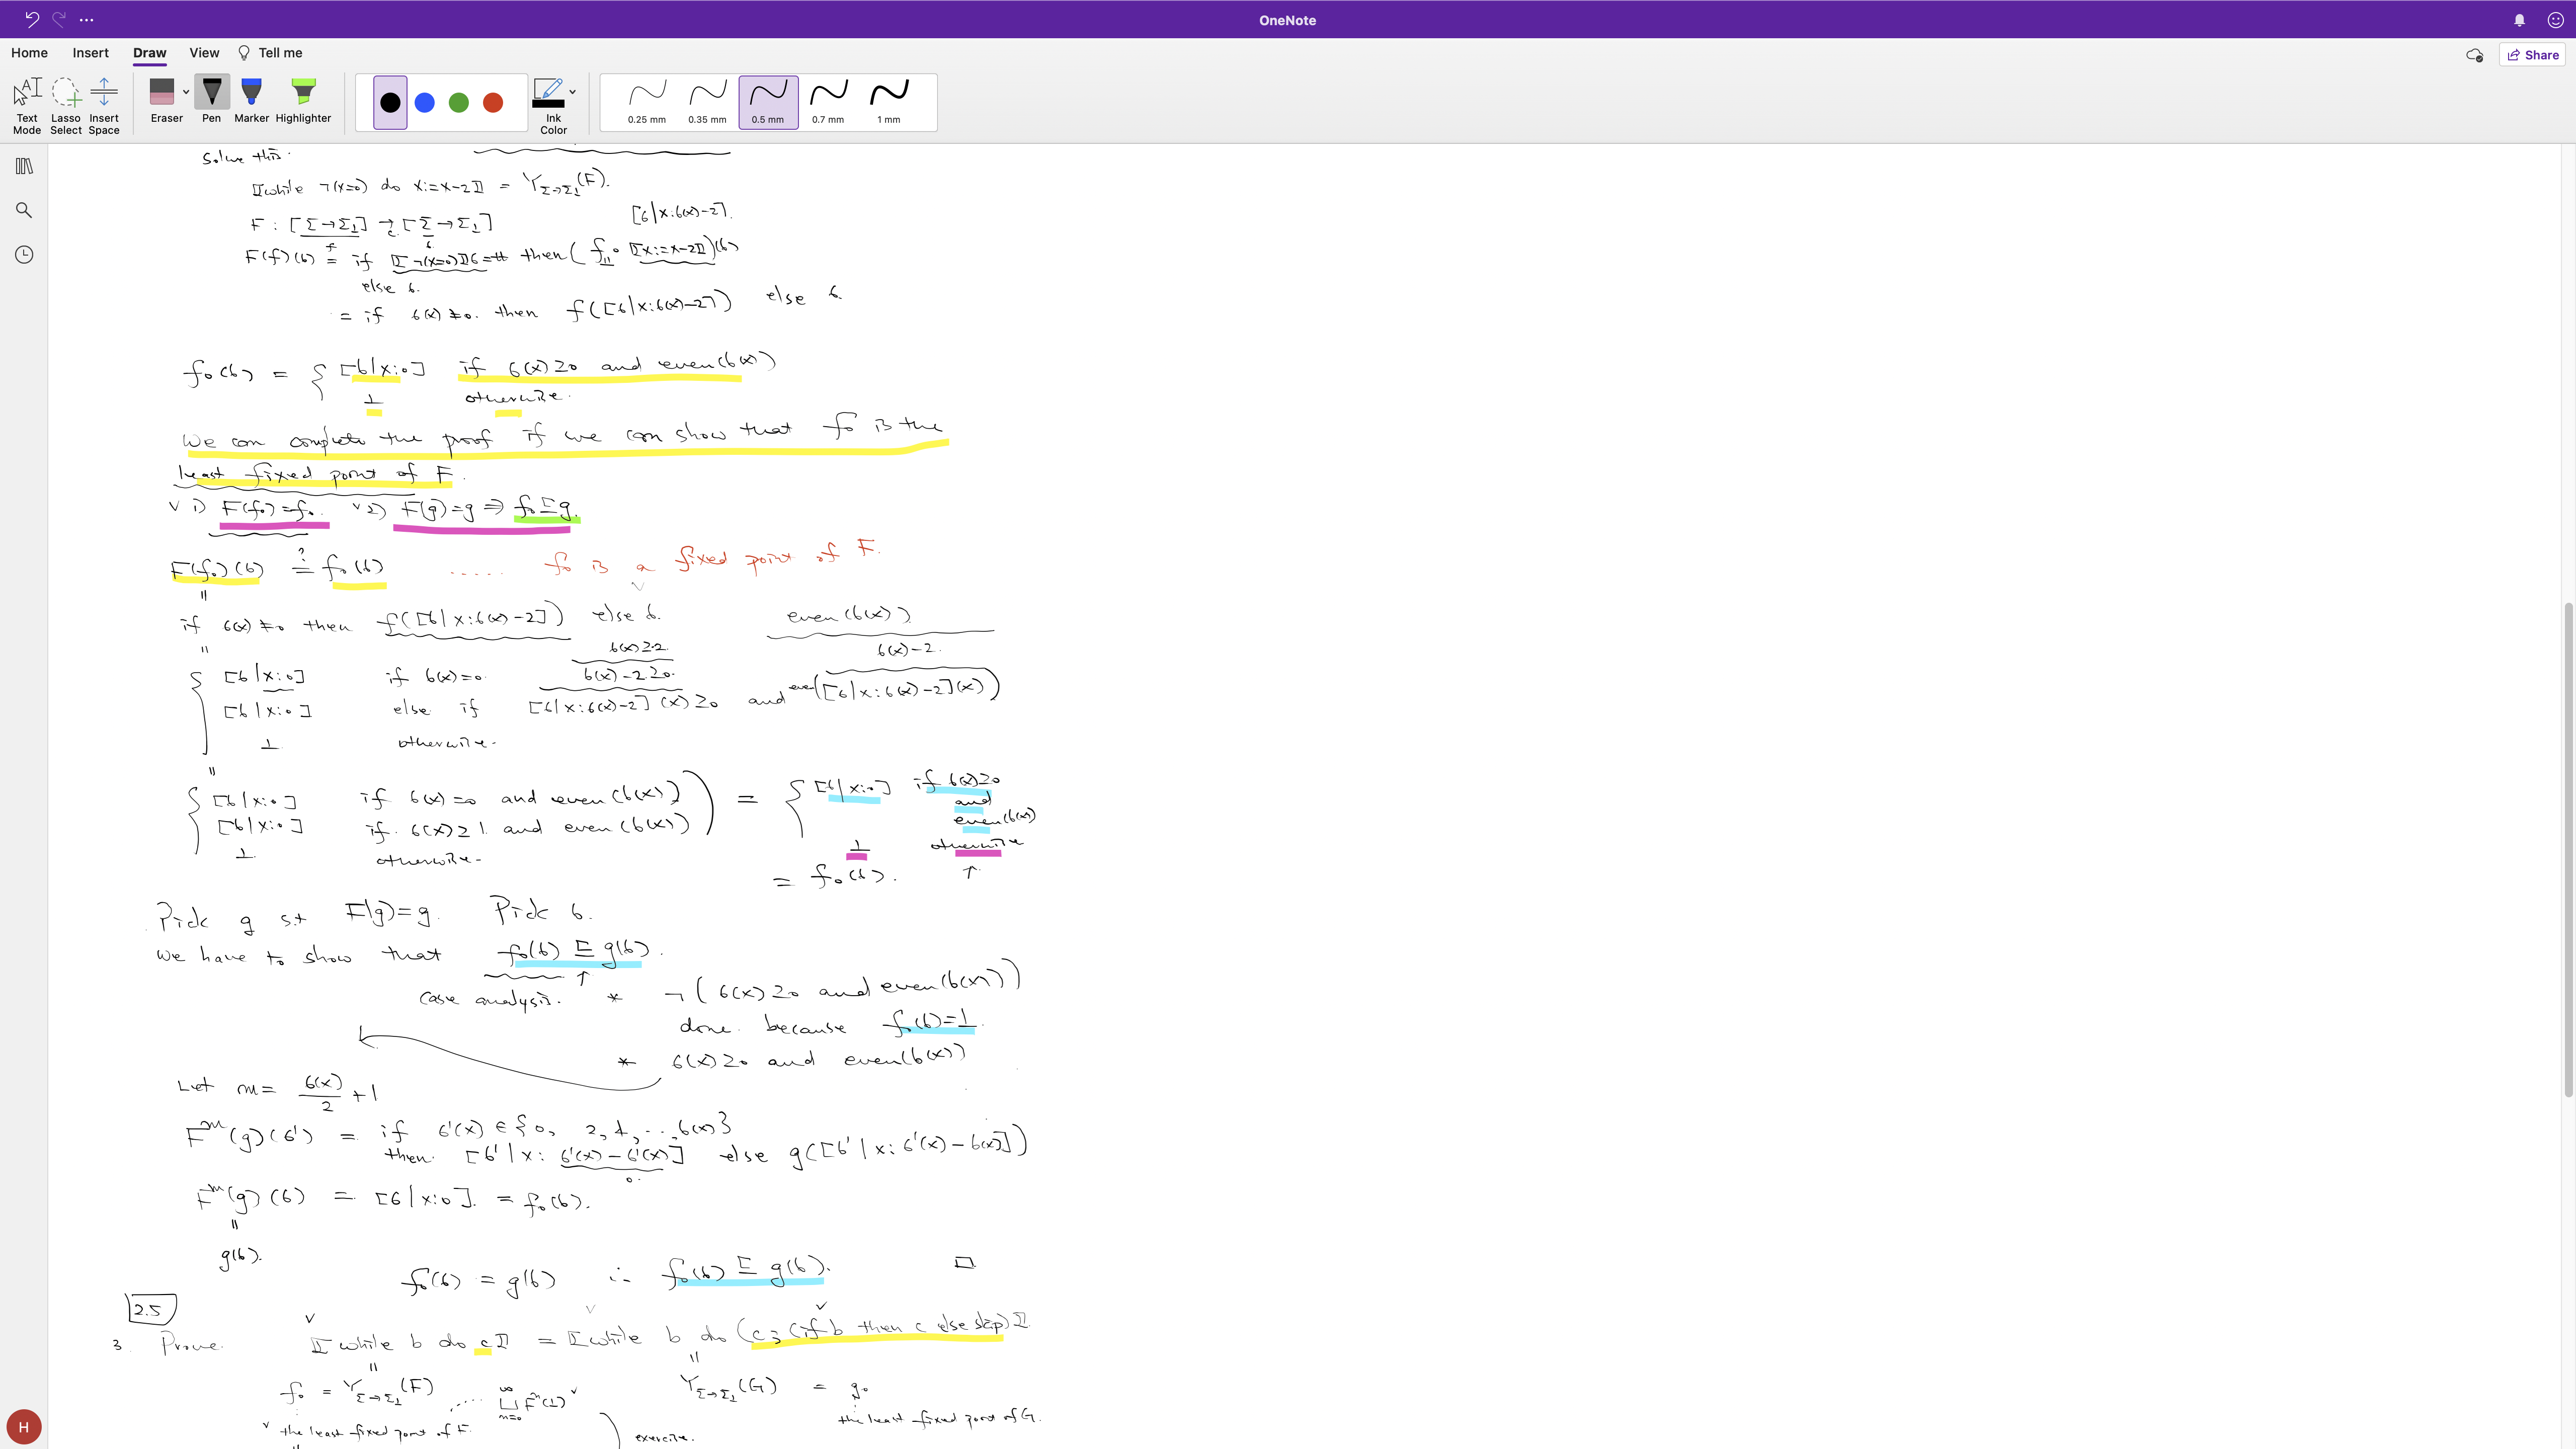 OneNote
Home Insert Draw View Tell me
Share
Text Mode
Lasso Select
Insert Space
Eraser
Pen
Marker
Highlighter
Ink Color
0.25 mm
0.35 mm
0.5 mm
0.7 mm
1 mm
Solve this.
⟦while ¬(x=0) do x:=x-2⟧ = Y_{Σ→Σ⊥}(F).
F : [Σ→Σ⊥] →c [Σ→Σ⊥]
[σ|x:σ(x)-2].
F(f)(σ) = if ⟦¬(x=0)⟧σ=tt then (f⊥⊥ ∘ ⟦x:=x-2⟧)(σ)
else σ.
= if σ(x)≠0. then f([σ|x:σ(x)-2]) else σ.
f₀(σ) = { [σ|x:0] if σ(x)≥0 and even(σ(x))
⊥ otherwise.
We can complete the proof if we can show that f₀ is the
least fixed point of F.
✓ 1) F(f₀)=f₀. ✓ 2) F(g)=g ⇒ f₀⊑g.
F(f₀)(σ) ≟ f₀(σ) ..... f₀ is a fixed point of F.
=
if σ(x)≠0 then f([σ|x:σ(x)-2]) else σ.
even(σ(x))
σ(x)≥2.
σ(x)-2
=
{ [σ|x:0] if σ(x)=0.
σ(x)-2≥0.
[σ|x:0] else if [σ|x:σ(x)-2](x)≥0 and even([σ|x:σ(x)-2](x))
⊥ otherwise.
=
{ [σ|x:0] if σ(x)=0 and even(σ(x))
[σ|x:0] if σ(x)≥1 and even(σ(x))
⊥ otherwise.
= { [σ|x:0] if σ(x)≥0
and
even(σ(x))
⊥ otherwise
= f₀(σ). ↑
Pick g s.t F(g)=g. Pick σ.
We have to show that f₀(σ) ⊑ g(σ).
↑
case analysis. * ¬(σ(x)≥0 and even(σ(x)))
done. because f₀(σ)=⊥.
* σ(x)≥0 and even(σ(x))
Let m = σ(x)/2 + 1
F^m(g)(σ') = if σ'(x) ∈ {0, 2, 4, ..., σ(x)}
then [σ'|x: σ'(x)-σ'(x)] else g([σ'|x: σ'(x)-σ(x)])
0.
F^m(g)(σ) = [σ|x:0]. = f₀(σ).
=
g(σ).
f₀(σ) = g(σ) ∴ f₀(σ) ⊑ g(σ). □
2.5
3. Prove. ⟦while b do c⟧ = ⟦while b do (c; (if b then c else skip)⟧.
= =
f₀ = Y_{Σ→Σ⊥}(F) ..... ⊔_{n=0}^{∞} F^n(⊥) Y_{Σ→Σ⊥}(G) = g₀
the least fixed point of F. the least fixed point of G.
exercise.
H